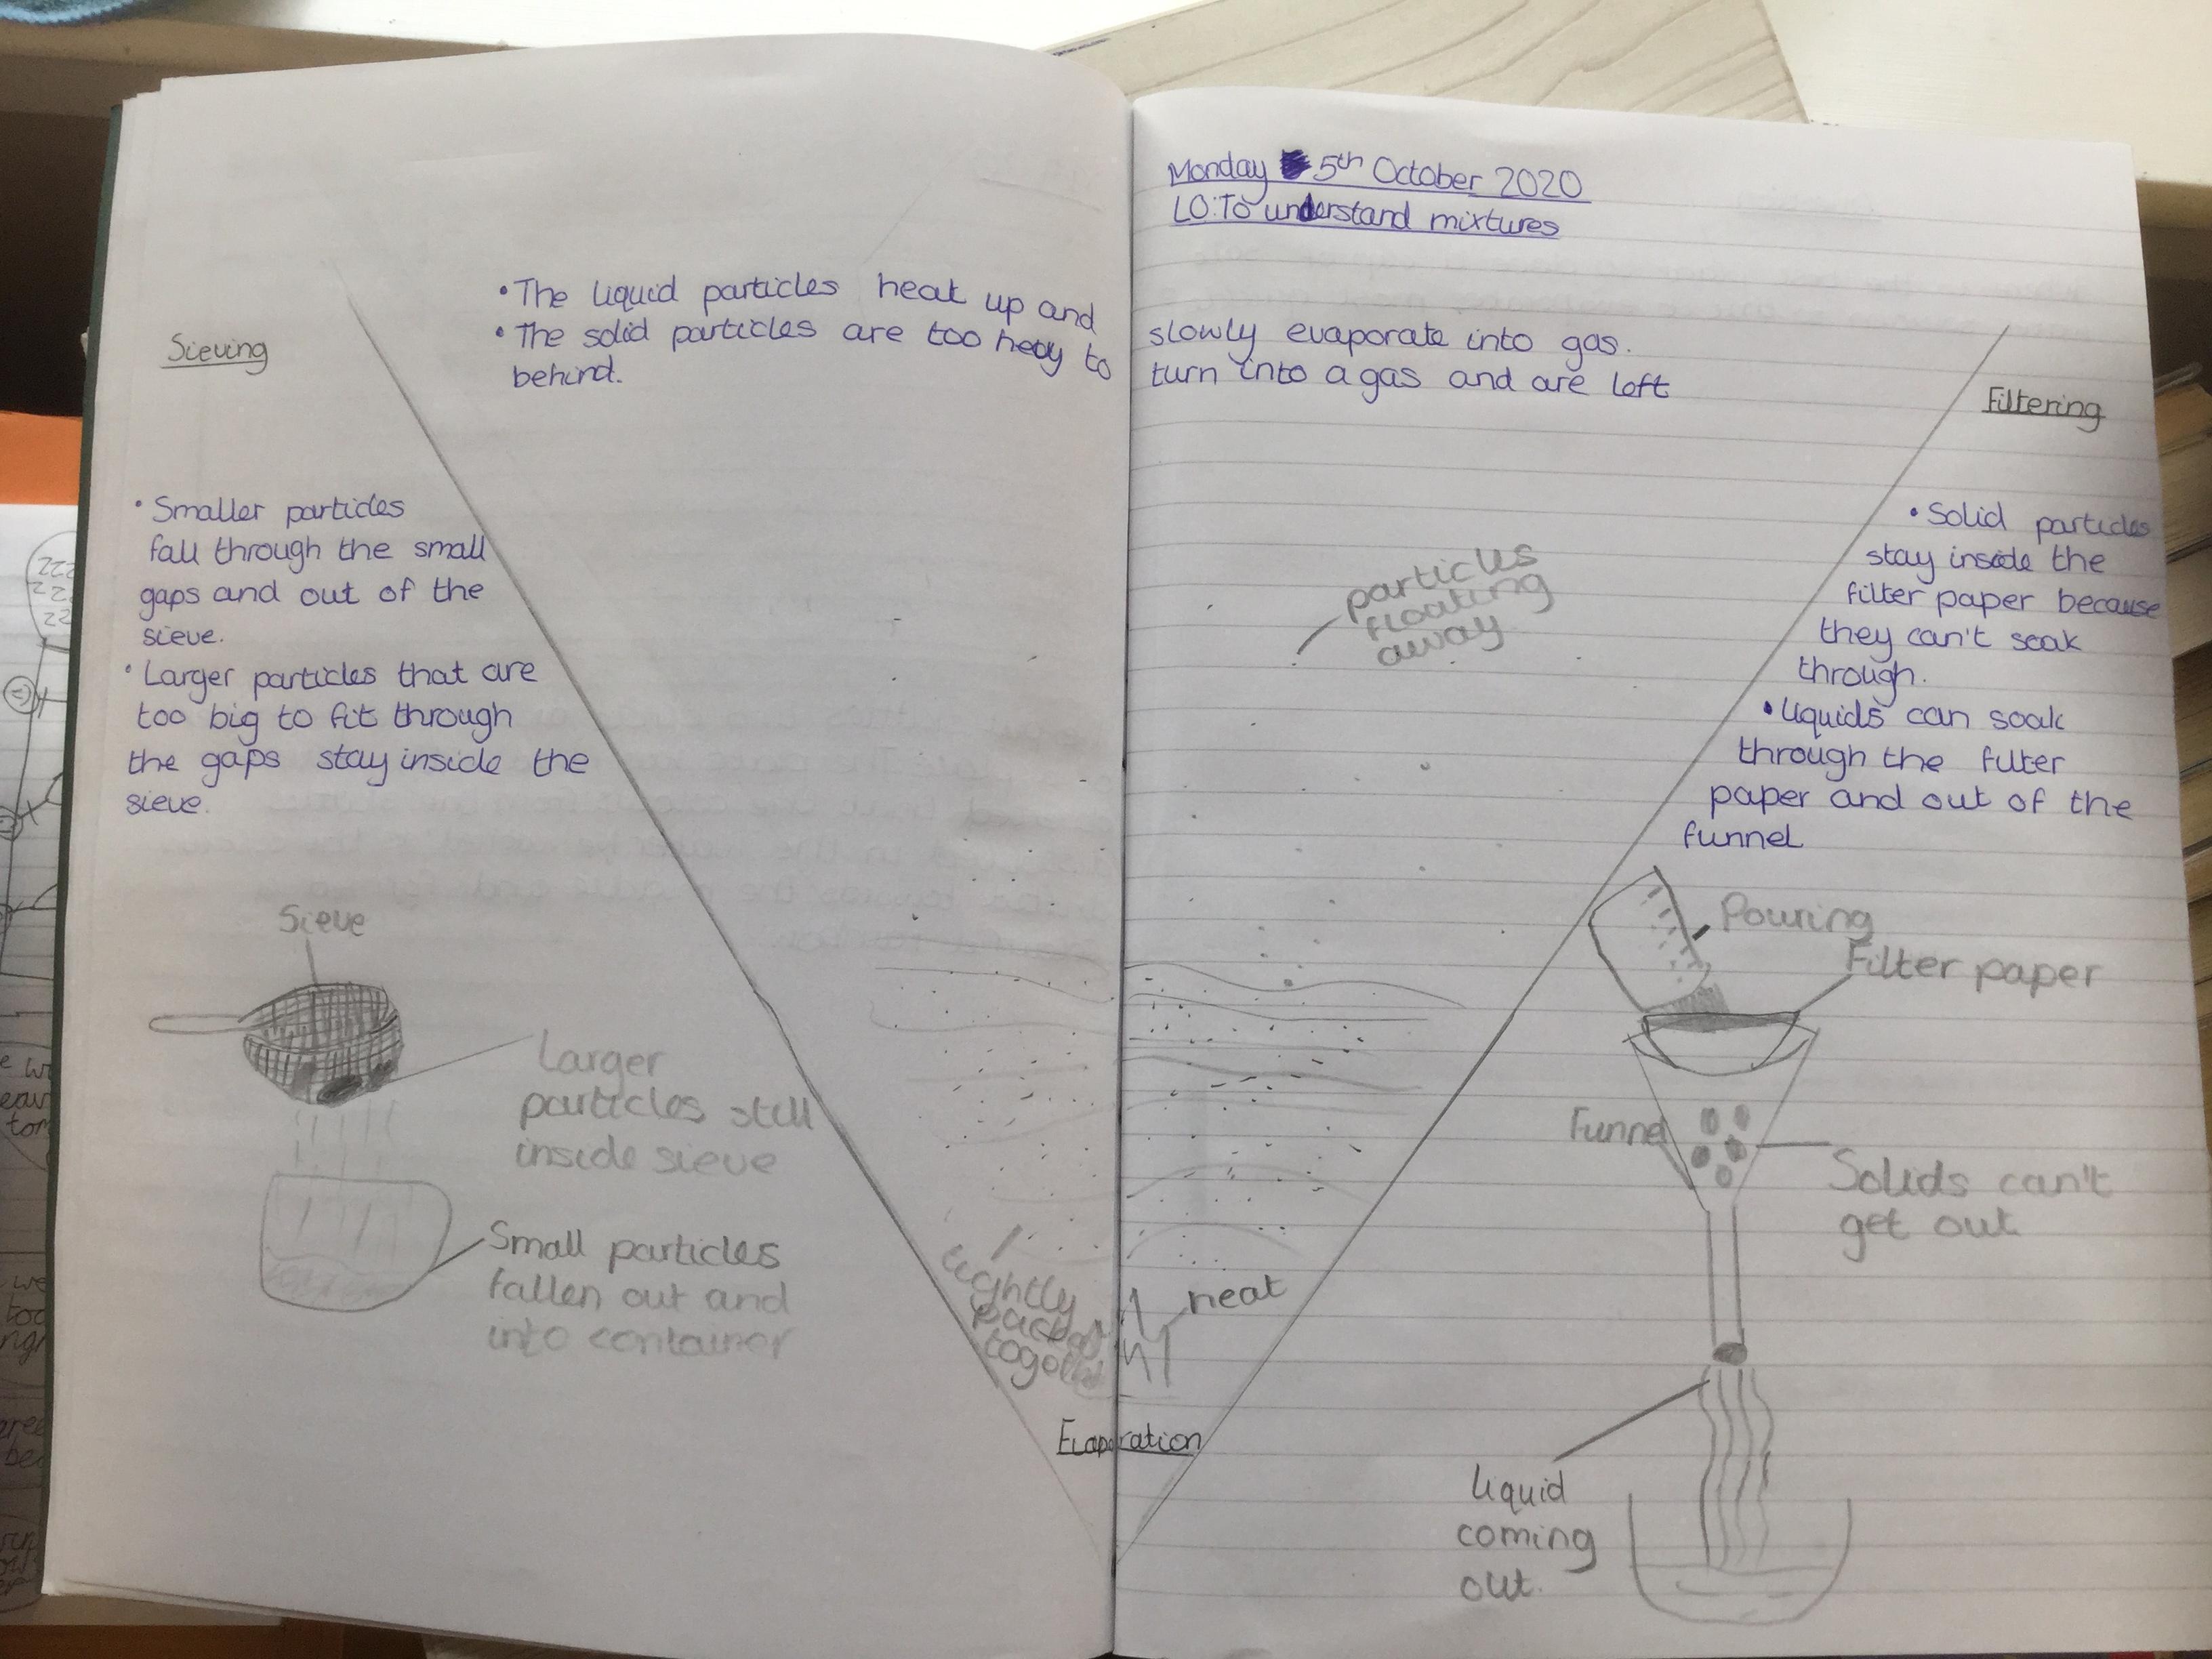 Monday 5th October 2020
LO: To understand mixtures
Sieving
• Smaller particles
fall through the small
gaps and out of the
sieve.
• Larger particles that are
too big to fit through
the gaps stay inside the
sieve.
Sieve
Larger
particles still
inside sieve
Small particles
fallen out and
into container
• The liquid particles heat up and slowly evaporate into gas.
• The solid particles are too heavy to turn into a gas and are left
behind.
particles
floating
away
tightly
packed
together
heat
Evaporation
Filtering
• Solid particles
stay inside the
filter paper because
they can't soak
through.
• Liquids can soak
through the filter
paper and out of the
funnel
Pouring
Filter paper
Funnel
Solids can't
get out
Liquid
coming
out.